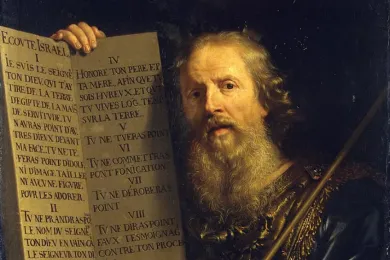 ECOVTE ISRAEL
I
IE SVIS LE SEIGNE
TON DIEV, QVI T'AY
TIRE DE LA TERRE
D'EGIPTE DE LA MAIS
DE SERVITVDE, TV
N'AVRAS POINT D'AV
TRES DIEVX DEVANT
MA FACE, TV NE TE
FERAS POINT D'IDOLE
NI D'IMAGE TAILLEE
NY AVCVNE FIGVRE
POVR LES ADORER.
II
TV NE PRANDRAS PO
LE NOM DV SEIGNE
TON DIEV EN VAIN
LE SEIGNEVR TON DI
IV
HONORE TON PERE ET
TA MERE, AFIN QVE TV
SOIS HVREVX, ET QVE
TV VIVES LOG TEMS
SVR LA TERRE.
V
TV NE TVERAS POINT
VI
TV NE COMMETTRAS
POINT FONICATION
VII
TV NE DEROBERAS
POINT
VIII
TV NE DIRAS POINT
FAVX TESMOIGNAG
CONTRE TON PROCH